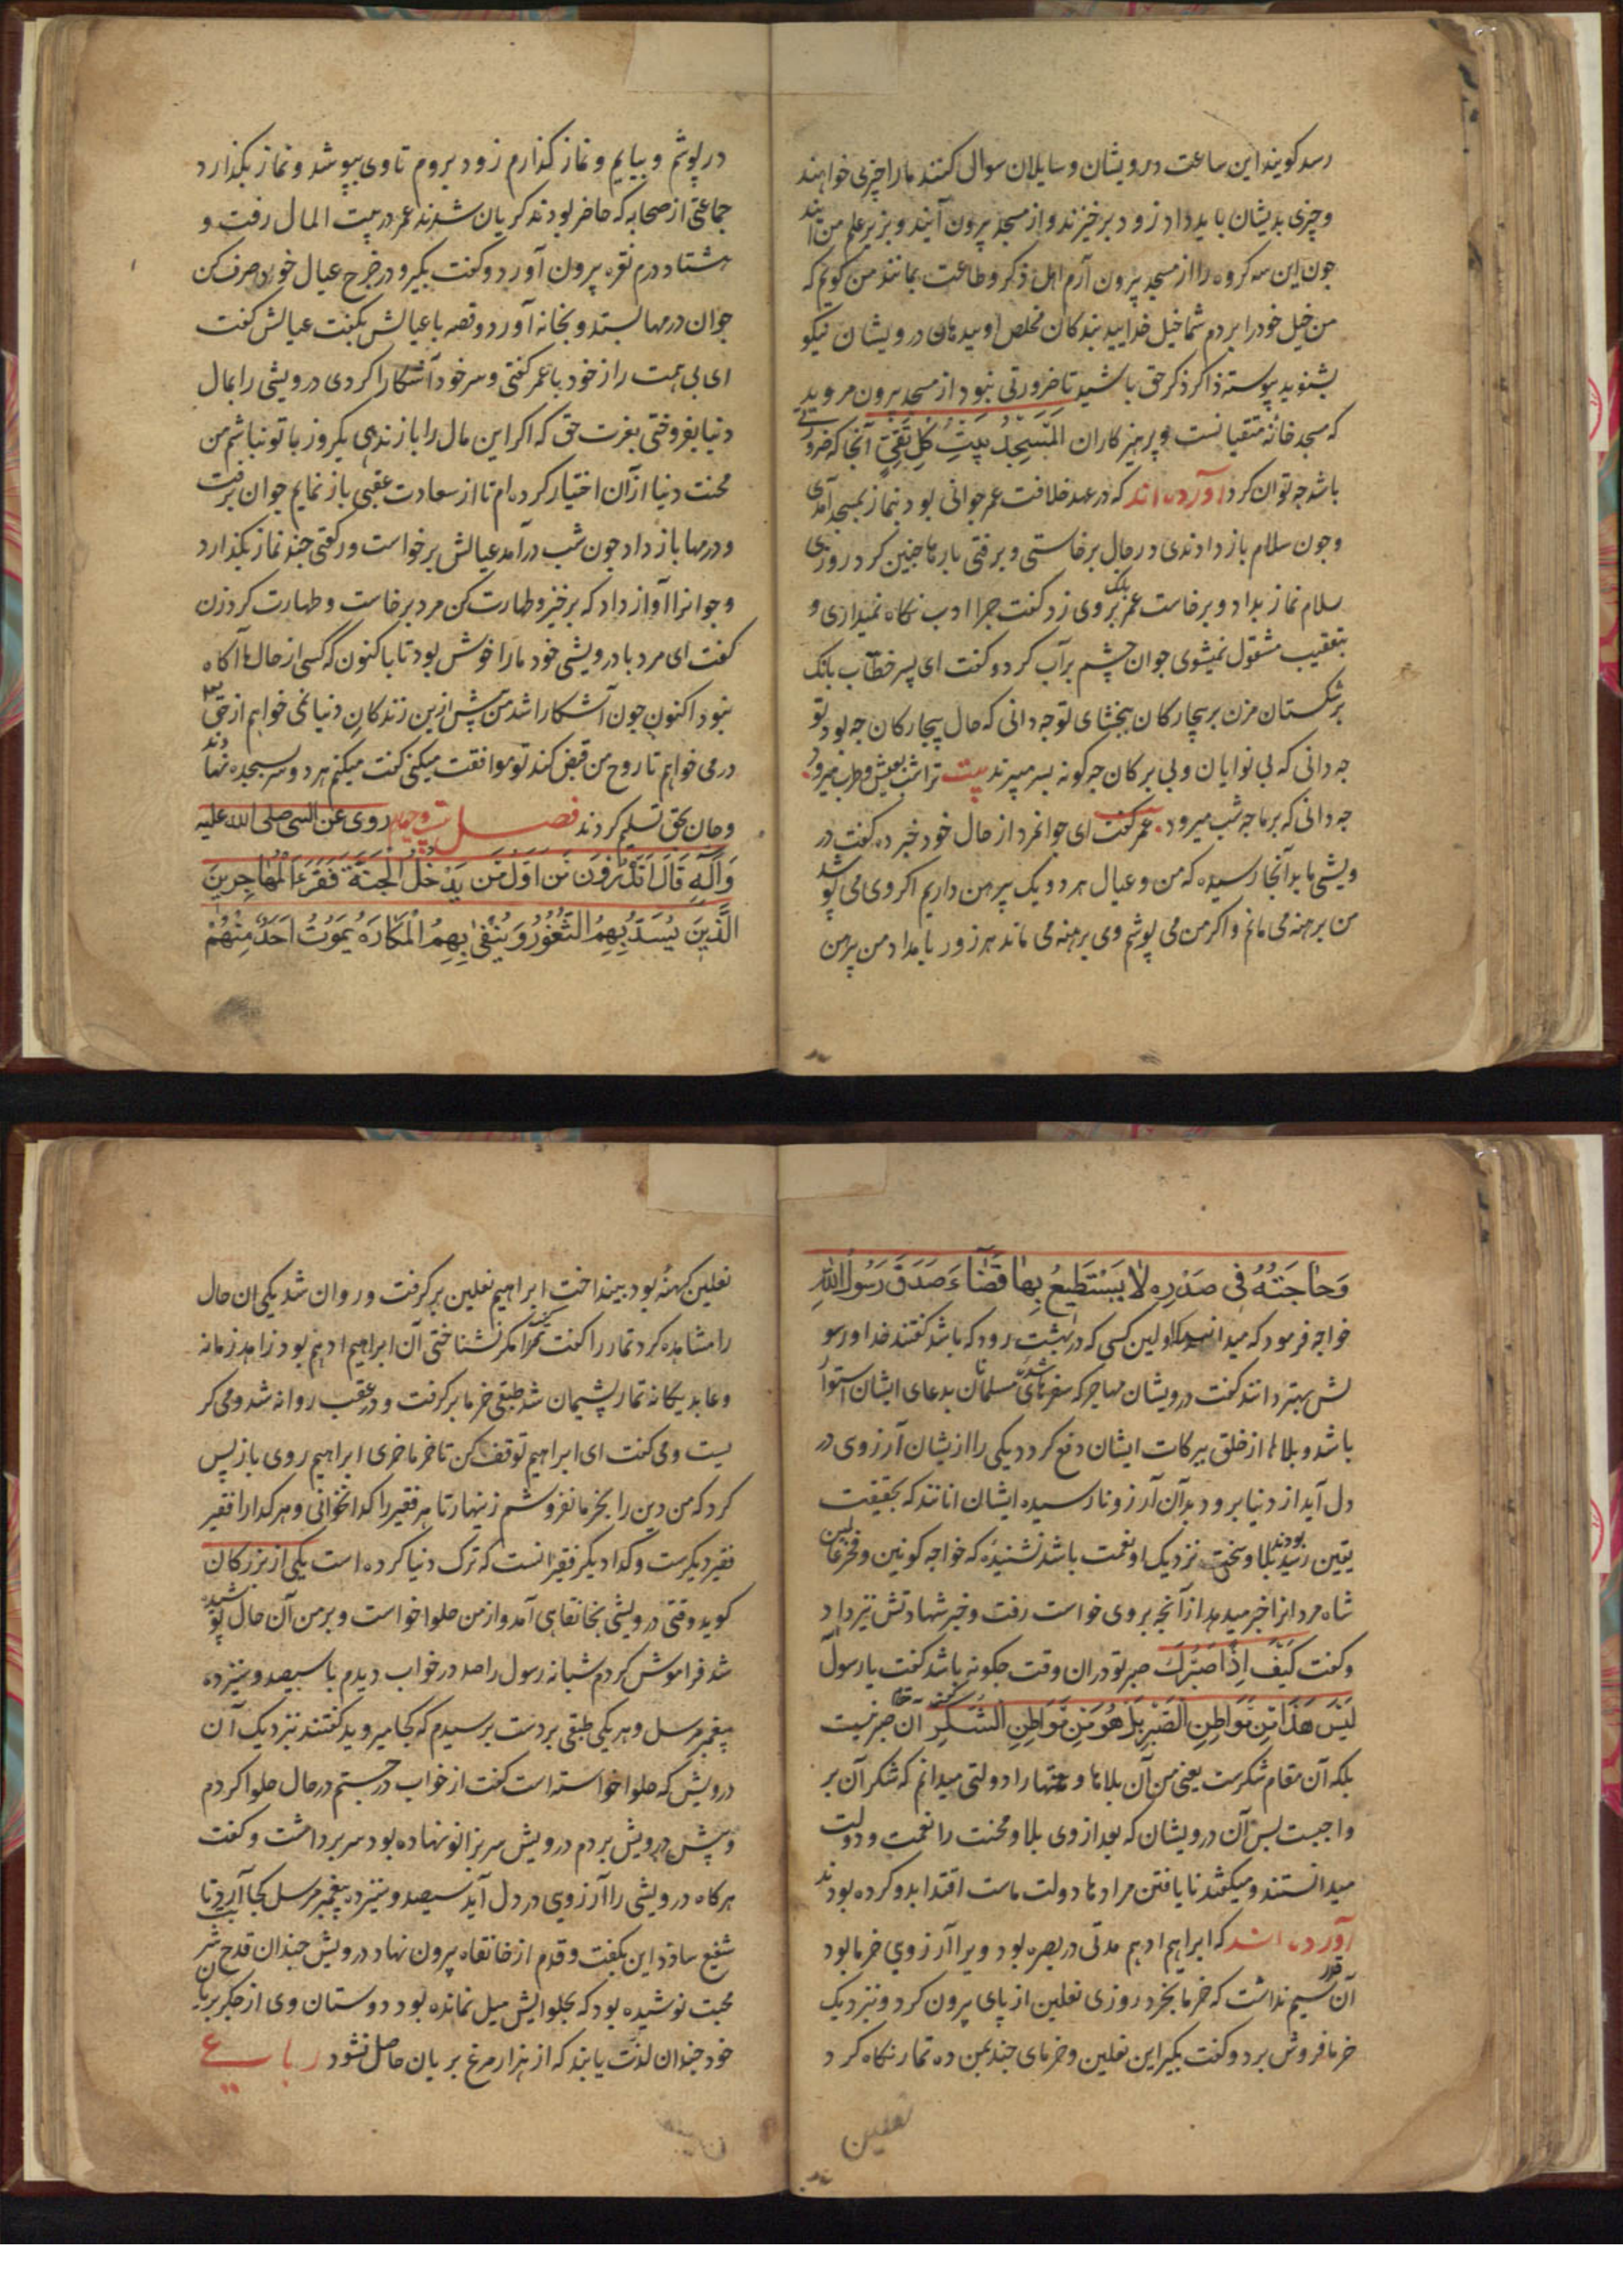 رسد کویند این ساعت درویشان و سایلان سوالی کنند مارا چیزی خواهند
و چیزی بدیشان باید داد زود برخیزند و از مسجد بیرون آیند و بزیر علم من آیند
جون این سه کروه را از مسجد بیرون آرم اهل ذکر و طاعت بمانند من کویم که
من خیل خود را بردم شما خیل خدایید بندکان مخلص اویید هان درویشان نیکو
بشنوید پیوسته ذاکر ذکر حق باشید تا ضرورتی نبود از مسجد بیرون مروید
که مسجد خانهٔ متقیانست و پرهیزکاران اَلْمَسْجِدُ بَیْتُ کُلِّ تَقِیٍّ آنجا که ضرورتی
باشد جه توان کرد آورده اند که در عهد خلافت عمر جوانی بود بنماز بمسجد آمدی
و جون سلام باز دادندی در حال برخاستی و برفتی بارها جنین کرد روزی
سلام نماز بداد و برخاست عمر بانک بر وی زد کفت جرا ادب نکاه نمیداری و
بتعقیب مشغول نمیشوی جوان جشم پرآب کرد و کفت ای پسر خطاب بانک
بر شکستان مزن بر بیچارکان ببخشای تو جه دانی که حال بیچارکان جه بود تو
جه دانی که بی نوایان و بی برکان جه کونه بسر میبرند بیت ترا شب بعیش و طرب میرود
جه دانی که بر ما جه شب میرود عمر کفت ای جوانمرد از حال خود خبر ده کفت در
ویشی ما بدآنجا رسیده که من و عیال هر دو یک پیرهن داریم اکر وی می پوشد
من برهنه می مانم و اکر من می پوشم وی برهنه می ماند هر روز بامداد من پیرهن
در پوشم و بیایم و نماز کذارم زود بروم تا وی بپوشد و نماز بکذارد
جماعتی از صحابه که حاضر بودند کریان شدند عمر در بیت المال رفت و
هشتاد درم نقره بیرون آورد و کفت بکیر و در خرج عیال خود صرف کن
جوان درمها بستد و بخانه آورد و قصه با عیالش بکفت عیالش کفت
ای بی همت راز خود با عمر کفتی و سر خود آشکارا کردی درویشی را بمال
دنیا بفروختی بعزت حق که اکر این مال را باز ندهی یکروز با تو نباشم من
محنت دنیا از آن اختیار کرده ام تا از سعادت عقبی باز نمایم جوان برفت
و درمها باز داد جون شب درآمد عیالش برخواست و رکعتی جند نماز بکذارد
و جوانرا آواز داد که برخیز و طهارت کن مرد برخاست و طهارت کرد زن
کفت ای مرد با درویشی خود ما را خوش بود تا باکنون که کسی از حال ما آکاه
نبود اکنون جون آشکارا شد من پیش ازین زندکان دنیا نمی خواهم از حق
در می خواهم تا روح من قبض کند تو موافقت میکنی کفت میکنم هر دو سر بسجده نهادند
و جان بحق تسلیم کردند فصل بیست و جهارم روی عن النبی صلی الله علیه
وَآلِهِ قَالَ اَتَدْرُونَ مَنْ اَوَّلُ مَنْ یَدْخُلُ الْجَنَّةَ فَقَرَاءُ الْمُهَاجِرِینَ
اَلَّذِینَ یُسَدُّ بِهِمُ الثُّغُورُ وَ یُنْفیٰ بِهِمُ الْمَکَارَهُ یَمُوتُ اَحَدٌ مِنْهُمْ
وَحَاجَتُهُ فِی صَدْرِهِ لَا یَسْتَطِیعُ بِهَا قَضَاءً صَدَقَ رَسُولُ اللهِ
خواجه فرمود که میدانید که اولین کسی که در بهشت رود که باشد کفتند خدا و رسو
لش بهتر دانند کفت درویشان مهاجر که ثغرهای مسلمانان بدعای ایشان استوار
باشد و بلاها از خلق ببرکات ایشان دفع کردد یکی را از یشان آرزوی در
دل آید از دنیا برود بدآن آرزو نارسیده ایشان انانند که بحقیقت
یقین رسیده بودند بلا و سختی نزدیک او نعمت باشد نشنیدهٔ که خواجه کونین و فخر عالمین
شاه مردانرا خبر میدهد از آنچه بر وی خواست رفت و خبر شهادتش نیز داد
و کفت کَیْفَ اِذًا صَبْرُكَ صبر تو دران وقت جکونه باشد کفت یا رسول
لَیْسَ هَذَا مِنْ مَوَاطِنِ الصَّبْرِ بَلْ هُوَ مِنْ مَوَاطِنِ الشُّکْرِ آن مقام صبر نیست
بلکه آن مقام شکرست یعنی من آن بلاها و محنتها را دولتی میدانم که شکر آن بر
واجبست پس آن درویشان که بعد از وی بلا و محنت را نعمت و دولت
میدانستند و میکفتند نایافتن مرادها دولت ماست اقتدا بدو کرده بودند
آورده اند که ابراهیم ادهم مدتی در بصره بود ویرا آرزوی خرما بود
آن قدر سیم نداشت که خرما بخرد روزی نعلین از پای بیرون کرد و نزدیک
خرمافروش برد و کفت بکیر این نعلین و خرمای جند بمن ده تمار نکاه کرد
نعلین
نعلین کهنهٔ بود بینداخت ابراهیم نعلین برکرفت و روان شد یکی ان حال
را مشاهده کرد تمار را کفت مکر نشناختی آن ابراهیم ادهم بود زاهد زمانه
و عابد یکانه تمار پشیمان شد طبقی خرما برکرفت و در عقب روانه شد و می کر
یست و می کفت ای ابراهیم توقف کن تا خرما خری ابراهیم روی باز پس
کرد که من دین را بخرما نفروشم زینهار تا هر فقیر را کدا نخوانی و هر کدا را فقیر
فقیر دیکرست و کدا دیکر فقیر آنست که ترک دنیا کرده است یکی از بزرکان
کوید وقتی درویشی بخانقاهی آمد و از من حلوا خواست و بر من آن حال پوشیده
شد فراموش کردم شبانه رسول را صد در خواب دیدم با سیصد و سیزده
پیغمبر مرسل و هر یکی طبقی بر دست پرسیدم که کجا میروید کفتند نزدیک آن
درویش که حلوا خواسته است کفت از خواب درجستم در حال حلوا کردم
و پیش درویش بردم درویش سر بزانو نهاده بود سر برداشت و کفت
هرکاه درویشی را آرزوی در دل آید سیصد و سیزده پیغمبر مرسل کجا آرد تا
شفیع سازد این بکفت و قدم از خانقاه بیرون نهاد درویش جندان قدح شراب
محبت نوشیده بود که بحلوایش میل نمانده بود دوستان وی از جکر بریان
خود جندان لذت یابند که از هزار مرغ بریان حاصل نشود رباعی